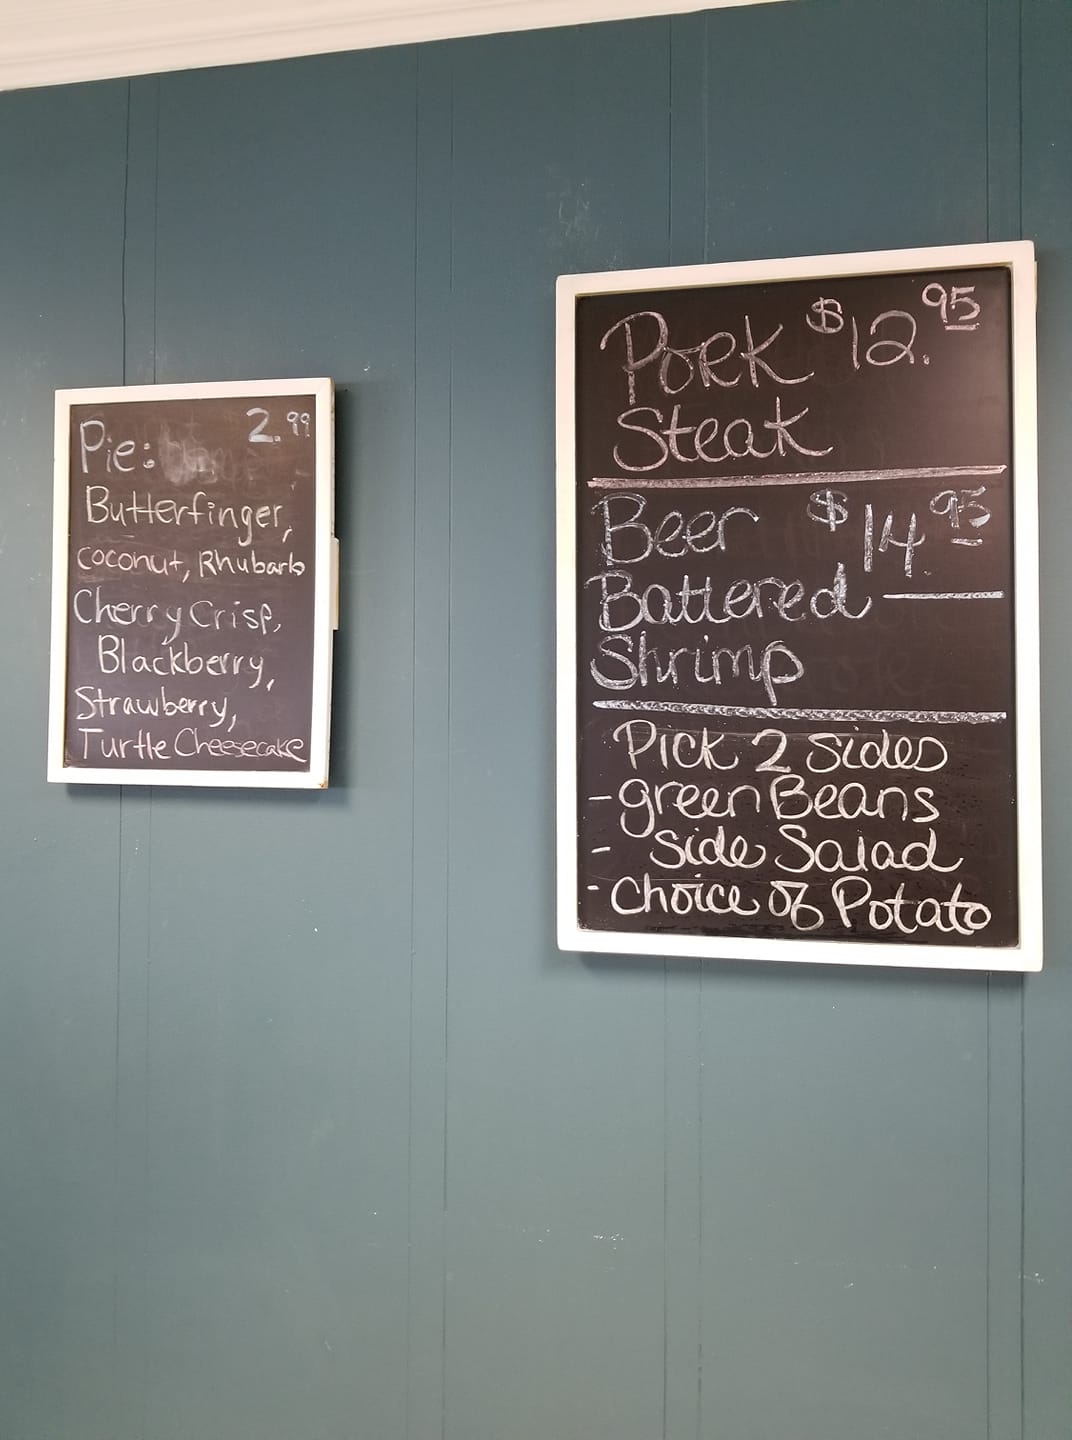 Pie: 2.99
Butterfinger,
coconut, Rhubarb
Cherry Crisp,
Blackberry,
Strawberry,
Turtle Cheesecake
Pork $12.95
Steak
Beer $14.95
Battered
Shrimp
Pick 2 sides
- green Beans
- side Salad
- Choice of Potato